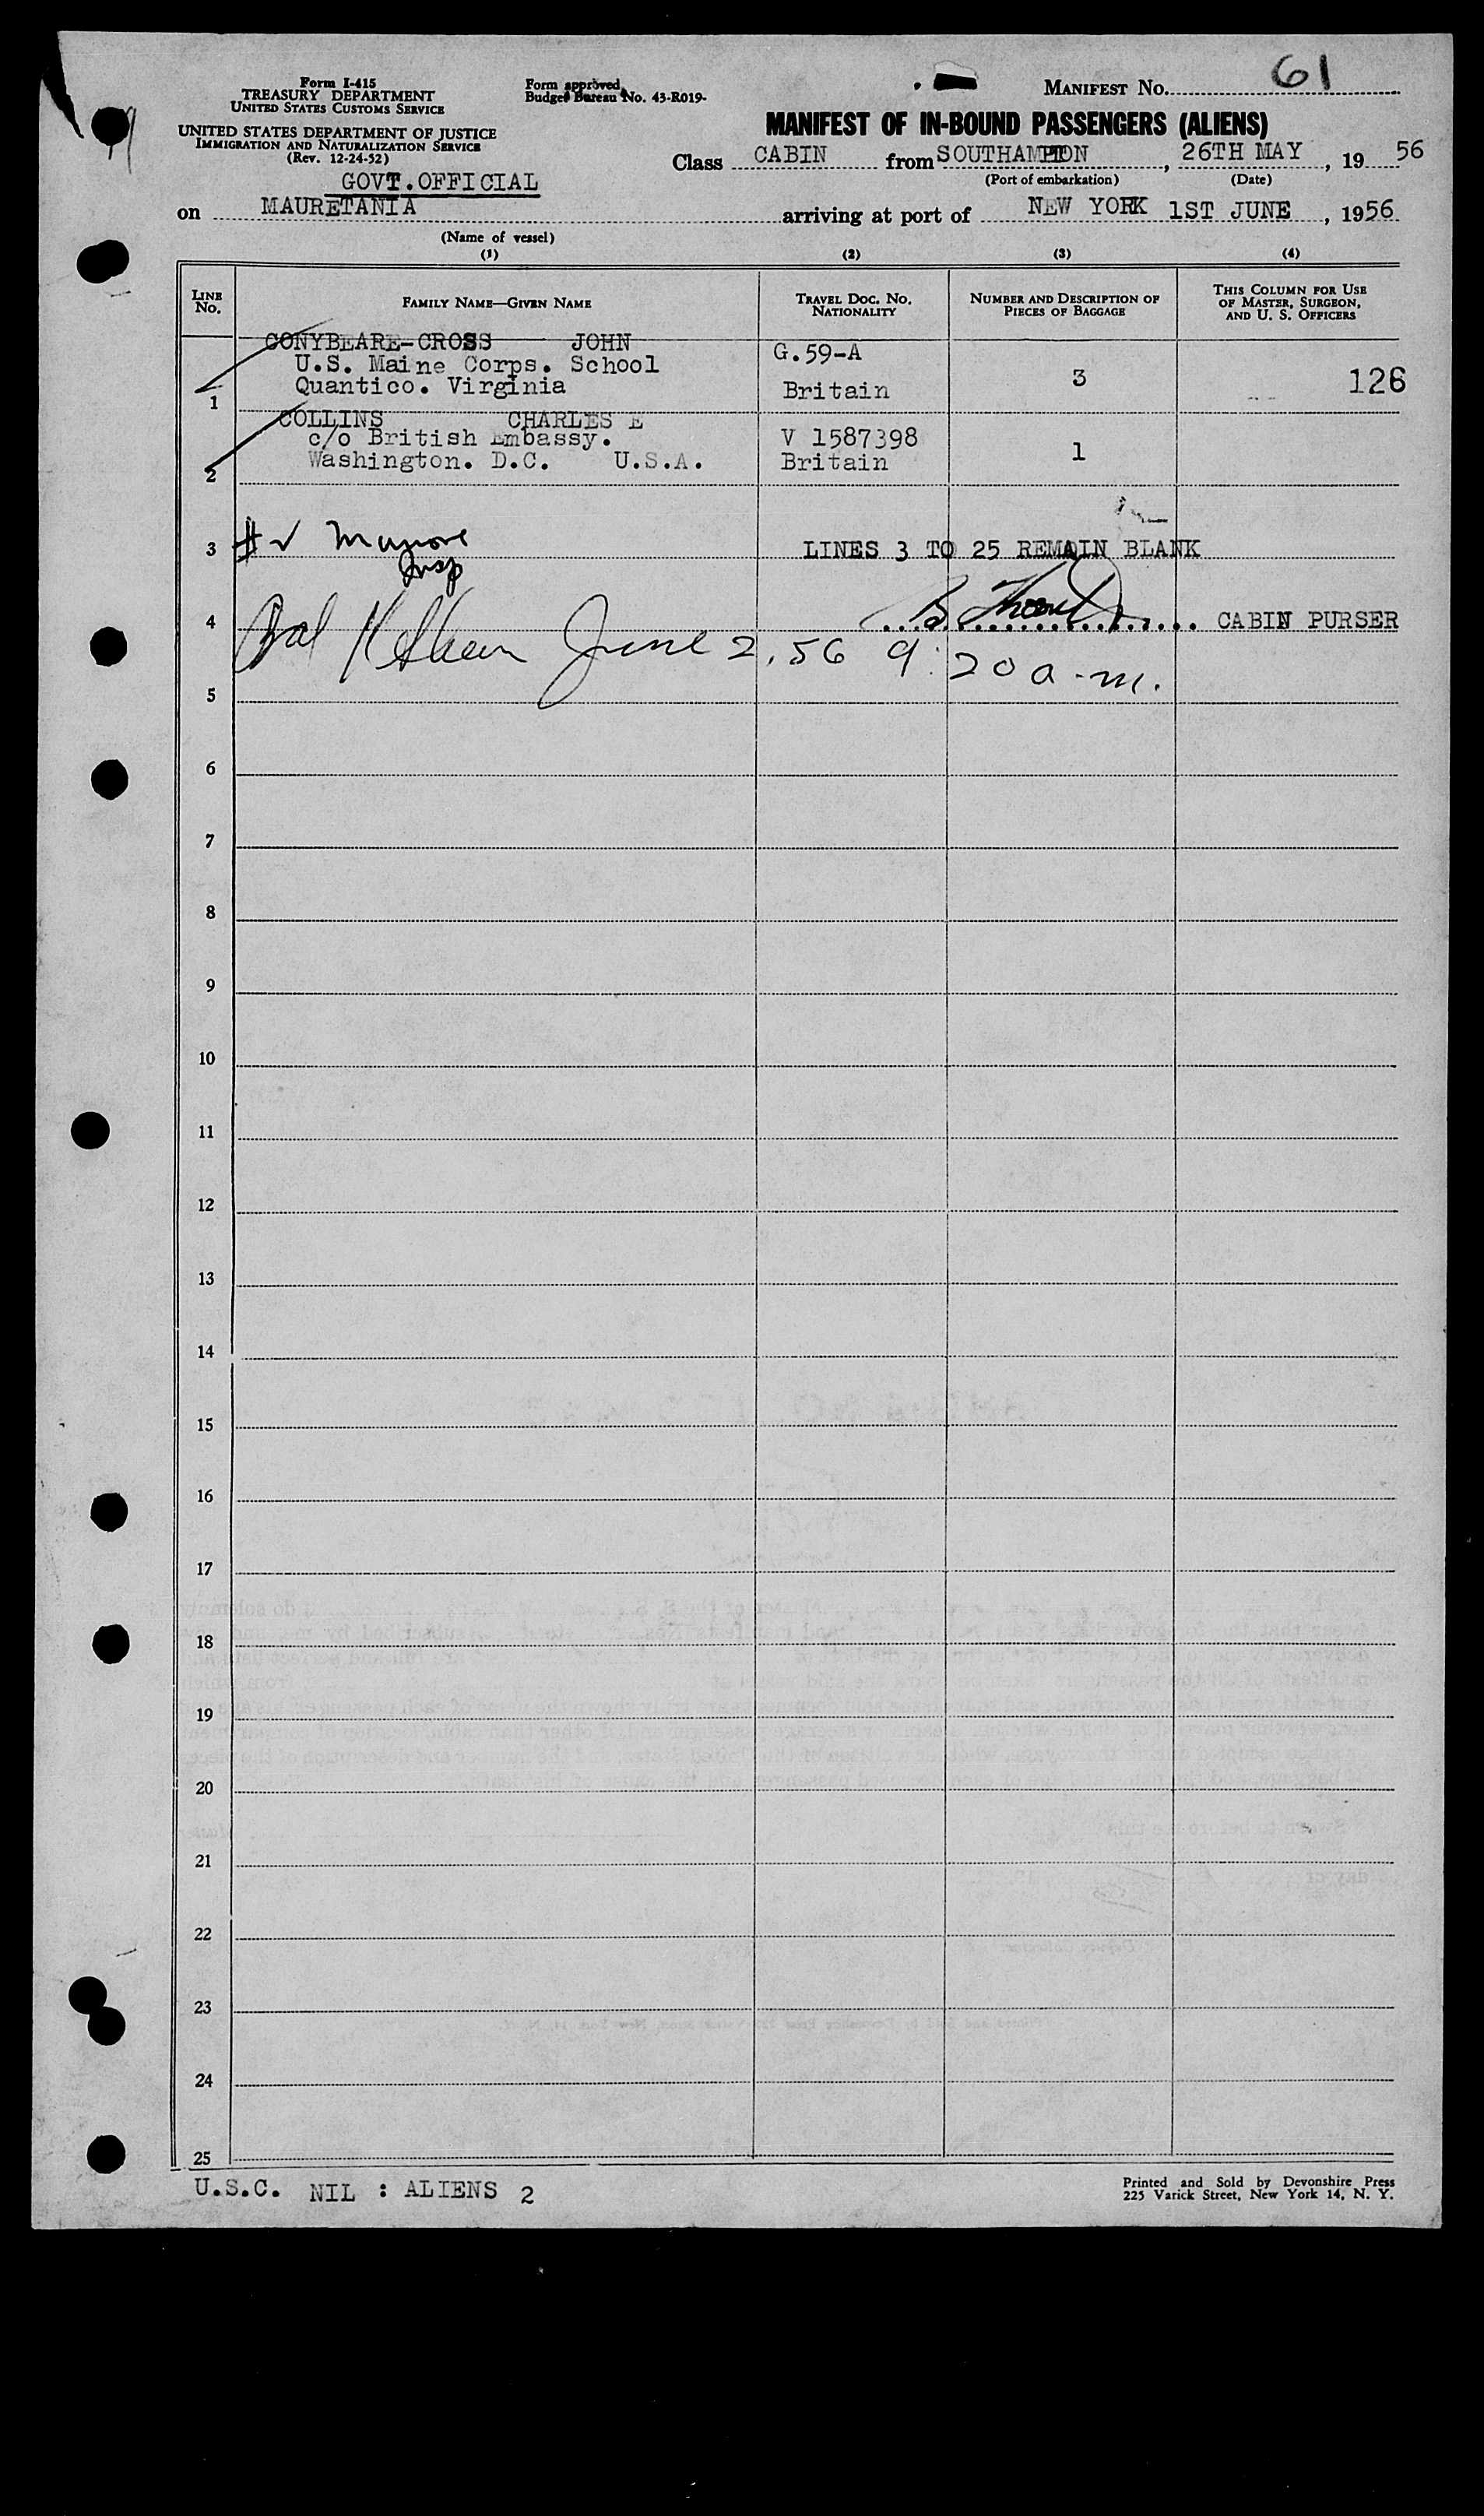 Form I-415
TREASURY DEPARTMENT
UNITED STATES CUSTOMS SERVICE
UNITED STATES DEPARTMENT OF JUSTICE
IMMIGRATION AND NATURALIZATION SERVICE
(Rev. 12-24-52)
Form approved.
Budget Bureau No. 43-R019-
MANIFEST No. 61
MANIFEST OF IN-BOUND PASSENGERS (ALIENS)
Class CABIN from SOUTHAMPTON, 26TH MAY, 19 56
(Port of embarkation) (Date)
GOVT.OFFICIAL
on MAURETANIA arriving at port of NEW YORK 1ST JUNE, 1956
(Name of vessel)
(1) (2) (3) (4)
LINE No. FAMILY NAME—GIVEN NAME TRAVEL DOC. NO. NATIONALITY NUMBER AND DESCRIPTION OF PIECES OF BAGGAGE THIS COLUMN FOR USE OF MASTER, SURGEON, AND U. S. OFFICERS
CONYBEARE-CROSS JOHN G.59-A
U.S. Maine Corps. School
1 Quantico. Virginia Britain 3 126
COLLINS CHARLES E
c/o British Embassy. V 1587398
2 Washington. D.C. U.S.A. Britain 1
3 LINES 3 TO 25 REMAIN BLANK
Insp
4 CABIN PURSER
June 2, 56 9:20 a.m.
5
6
7
8
9
10
11
12
13
14
15
16
17
18
19
20
21
22
23
24
25
U.S.C. NIL : ALIENS 2
Printed and Sold by Devonshire Press
225 Varick Street, New York 14, N. Y.